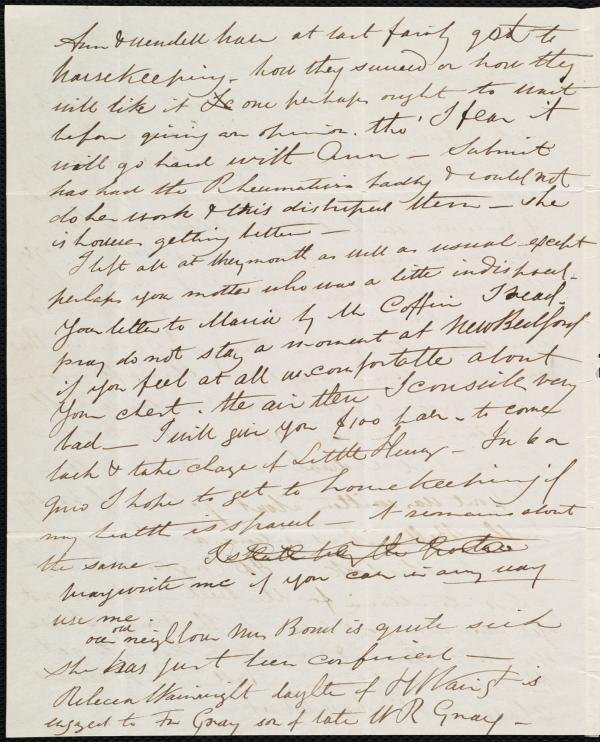 Ann & Wendell have at last fairly got to
housekeeping - how they succeed or how they
will like it one perhaps ought to wait
before giving an opinion. tho' I fear it
will go hard with Ann - Submit
has had the Rheumatism badly & could not
do her work & this distressed them - she
is however getting better -
I left all at Weymouth as well as usual except
perhaps your mother who was a little indisposed -
Your letter to Maria by Mr Coffin I read -
pray do not stay a moment at New Bedford
if you feel at all uncomfortable about
your chest. the air there I consider very
bad - I will give you $100 to come
back & take charge of Little Henry - In 6 or
I hope to get to housekeeping if
my health is spared - It remains about
the same - 
pray write me if you can in any way
use me.
our old neighbour Mrs Bond is quite sick
she has just been confined -
Rebecca Wainwright daughter of H Wainwt is
engaged to Fr Gray son of late W R Gray -